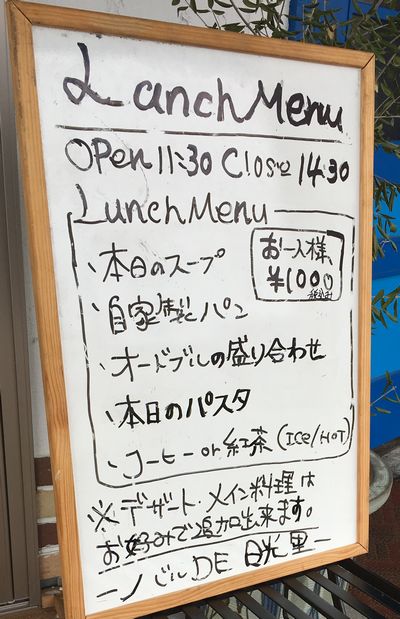 Lanch Menu
OPen 11:30 Close 14:30
Lunch Menu
お一人様、
¥1000
税込み
、本日のスープ
、自家製パン
、オードブルの盛り合わせ
、本日のパスタ
、コーヒー or 紅茶 (Ice/HOT)
※デザート・メイン料理は
お好みで追加出来ます。
ーバルDE 日光里ー